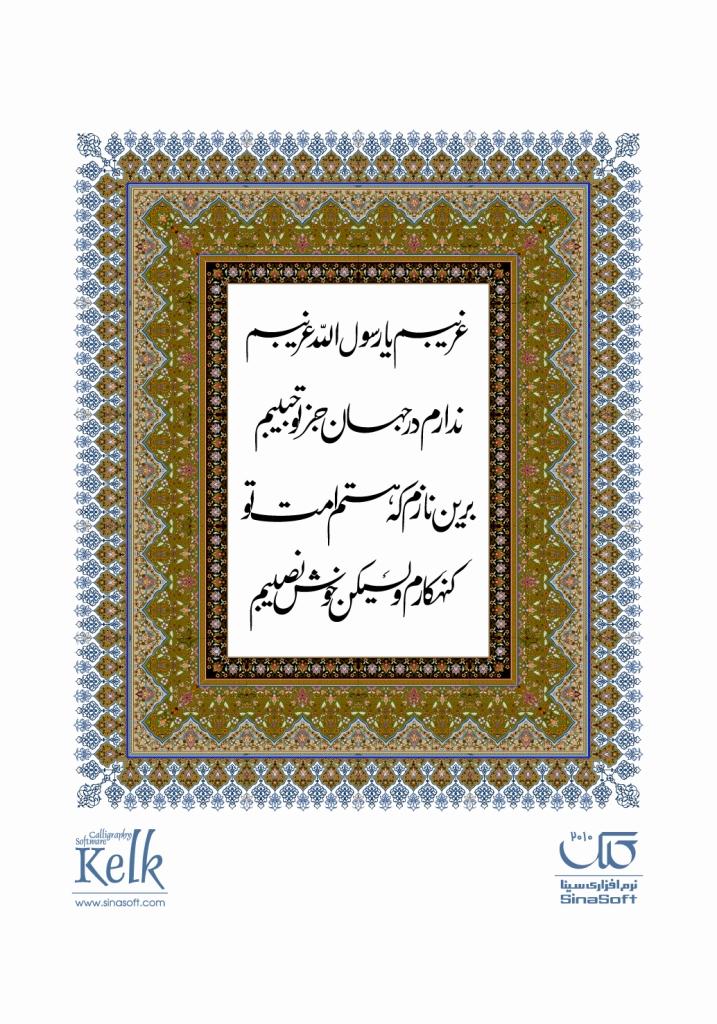 غریبم یا رسول اللّه غریبم
ندارم در جهان جز تو حبیبم
برین نازم که هستم امت تو
گنهکارم ولیکن خوش نصیبم
Calligraphy
Software
Kelk
www.sinasoft.com
کلک ۲۰۱۰
نرم افزاری سینا
SinaSoft